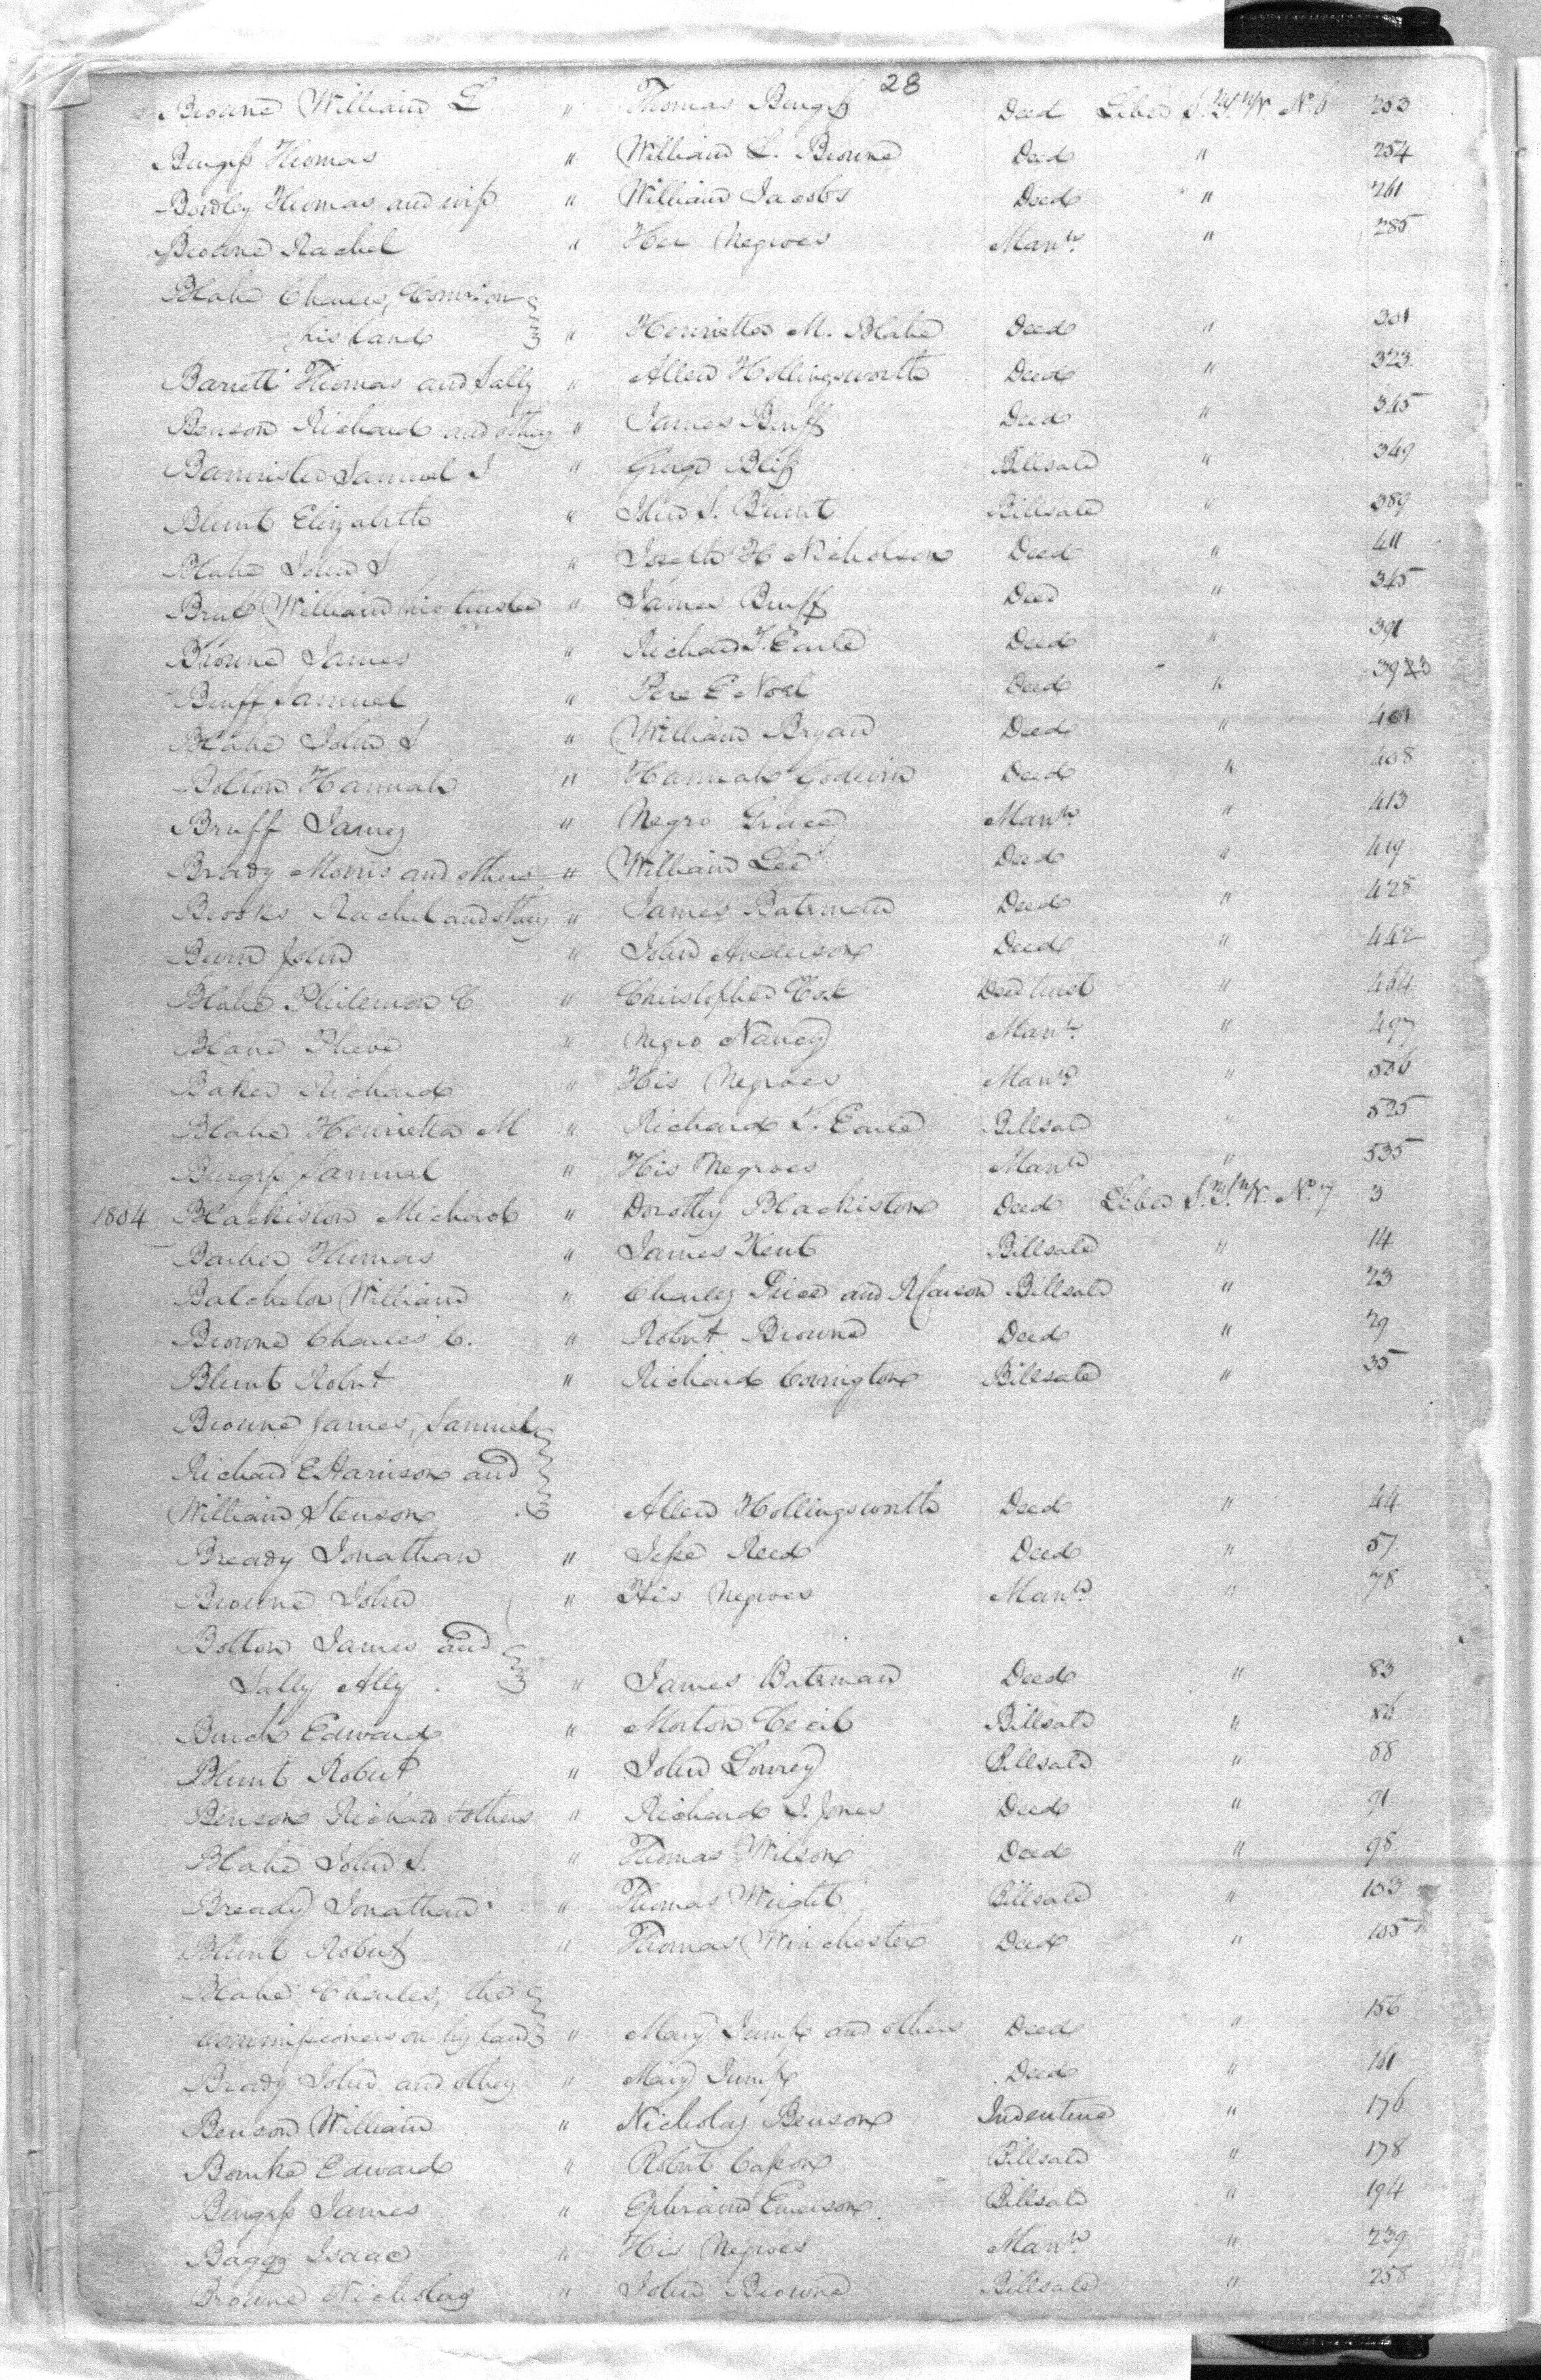 28
Browne William L " Thomas Burgess Deed Liber S.T.W. No. 6 253
Burgess Thomas " William L. Browne Deed " 254
Bordley Thomas and wife " William Jacobs Deed " 261
Browne Rachel " Her Negroes Mann. " 285
Blake Charles, Comrs on
his land " Henrietta M. Blake Deed " 301
Barrett Thomas and Sally " Allen Hollingsworth Deed " 323
Benson Richard and others " James Bruff Deed " 345
Bannister Samuel I " George Bliss Billsale " 349
Blunt Elizabeth " John S. Blunt Billsale " 389
Blake John S " Joseph H Nicholson Deed " 411
Bruff William his trustee " James Bruff Deed " 345
Browne James " Richard T. Earle Deed " 391
Bruff Samuel " Pere E Noel Deed " 393
Blake John S " William Bryan Deed " 401
Bolton Hannah " Hannah Godwin Deed " 408
Bruff James " Negro Grace Mann. " 413
Brady Morris and others " William Lee Deed " 419
Brooks Rachel and others " James Bateman Deed " 428
Burn John " John Anderson Deed " 442
Blake Philemon C " Christopher Cox Deed trust " 464
Blake Phebe " Negro Nancy Mann. " 497
Baker Richard " His Negroes Mann. " 506
Blake Henrietta M " Richard T. Earle Billsale " 525
Burgess Samuel " His Negroes Mann " 535
1804 Blackiston Michael " Dorothy Blackiston Deed Liber S.T.W. No. 7 3
Barber Thomas " James Kent Billsale " 14
Batchelor William " Charles Price and R Carson Billsale " 23
Browne Charles C. " Robert Browne Deed " 29
Blunt Robert " Richard Corrington Billsale " 35
Browne James, Samuel
Richard E Harrison and
William Stenson Allen Hollingsworth Deed " 44
Bready Jonathan " Jesse Reed Deed " 57
Browne John " His Negroes Mann. " 78
Bolton James and
Sally Ally " James Bateman Deed " 83
Burch Edward " Morton Cecil Billsale " 86
Blunt Robert " John Lowrey Billsale " 88
Benson Richard & others " Richard I. Jones Deed " 91
Blake John S. " Thomas Wilson Deed " 98
Bready Jonathan " Thomas Wright Billsale " 103
Blunt Robert " Thomas Winchester Deed " 105
Blake Charles, the
Commissioners on his land " Mary Jump and others Deed " 156
Brady John and others " Mary Jump Deed " 161
Benson William " Nicholas Benson Indenture " 176
Bourke Edward " Robert Casson Billsale " 178
Burgess James " Ephraim Emerson Billsale " 194
Baggs Isaac " His Negroes Mann. " 239
Browne Nicholas " John Browne Billsale " 258